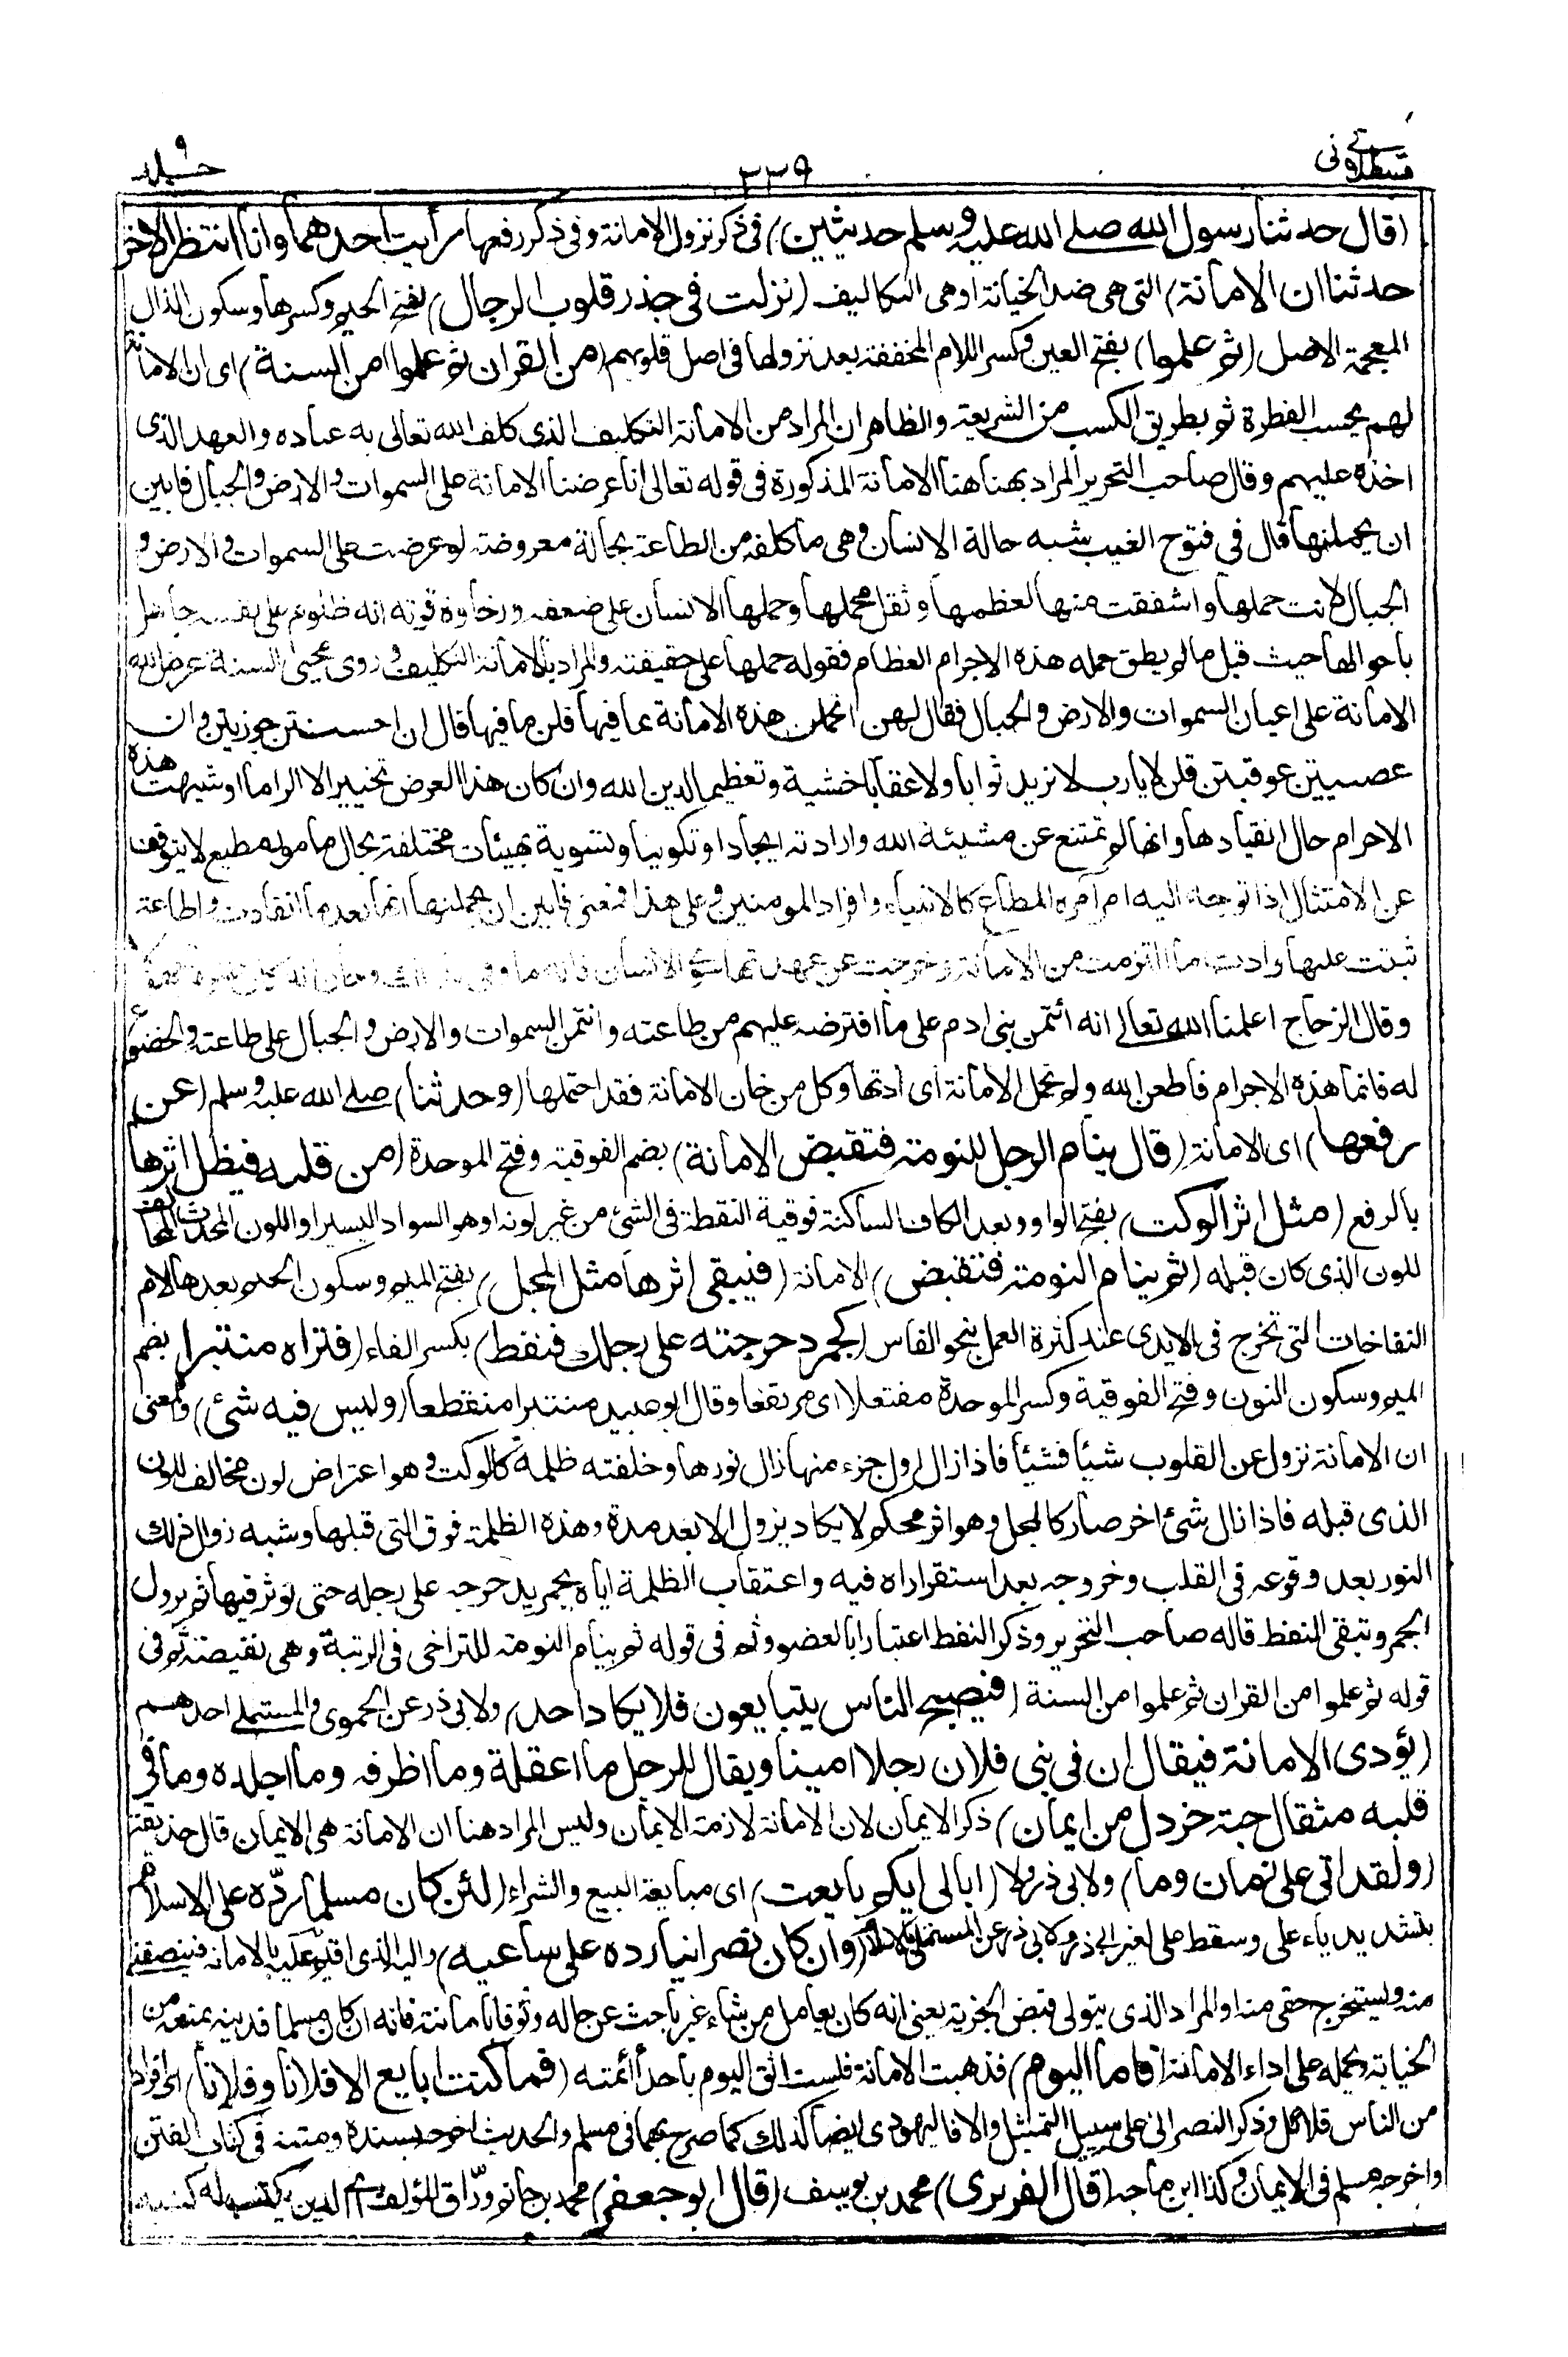 قسطلانی
٣٣٩
جلد ٩
(قال حدثنا رسول الله صلے الله علیه وسلم حدیثین) فی ذکر نزول الامانة وفی ذکر رفعها (رأیت احدهما وانا انتظر الاخر
حدثنا ان الامانة) التی هی ضد الخیانة او هی التکالیف (نزلت فی جذر قلوب الرجال) بفتح الجیم وکسرها وسکون الذال
المعجمة الاصل (ثم علموا) بفتح العین وکسر اللام المخففة بعد نزولها فی اصل قلوبهم (من القران ثم علموا من السنة) ای ان الامانة
لهم بحسب الفطرة ثم بطریق الکسب من الشریعة والظاهر ان المراد من الامانة التکلیف الذی کلف الله تعالی به عباده والعهد الذی
اخذه علیهم وقال صاحب التحریر المراد بهنا هنا الامانة المذکورة فی قوله تعالی انا عرضنا الامانة علی السموات والارض والجبال فابین
ان یحملنها قال فی فتوح الغیب شبه حالة الانسان وهی ما کلفه من الطاعة بحالة معروضة لو عرضت علی السموات والارض و
الجبال لابت حملها واشفقت منها لعظمها وثقل محملها وحملها الانسان علی ضعفه ورخاوة قوته انه ظلوم علی نفسه جاهل
باحوالها حیث قبل ما لم یطق حمله هذه الاجرام العظام فقوله حملها علی حقیقته والمراد بالامانة التکلیف وروی محیی السنة عرض الله
الامانة علی اعیان السموات والارض والجبال فقال لهن اتحملن هذه الامانة بما فیها قلن ما فیها قال ان احسنتن جوزیتن وان
عصیتن عوقبتن قلن لا یارب لا نرید ثوابا ولا عقابا خشیة وتعظیما لدین الله وان کان هذا العرض تخییرا لا الزاما او شبهت هذه
الاجرام حال انقیادها وانها لم تمتنع عن مشیئة الله وارادته ایجادا وتکوینا وتسویة بهیئات مختلفة بحال مامور مطیع لا یتوقف
عن الامتثال اذا توجه الیه امر آمره المطاع کالانبیاء وافراد المومنین وعلی هذا فمعنی فابین ان یحملنها انها بعد ما انقادت واطاعت
ثبتت علیها وادت ما التزمت من الامانة وخرجت عن عهدتها سوی الانسان فانه ما وفی بذلک
وقال الزجاج اعلمنا الله تعالی انه ائتمن بنی ادم علی ما افترضه علیهم من طاعته وائتمن السموات والارض والجبال علی طاعته والخضوع
له فاما هذه الاجرام فاطعن الله ولم تحمل الامانة ای ادتها وکل من خان الامانة فقد احتملها (وحدثنا) صلے الله علیه وسلم (عن
رفعها) ای الامانة (قال ینام الرجل النومة فتقبض الامانة) بضم الفوقیة وفتح الموحدة (من قلبه فیظل اثرها
بالرفع (مثل اثر الوکت) بفتح الواو وبعد الکاف الساکنة فوقیة النقطة فی الشئ من غیر لونه او هو السواد الیسیر او اللون المحدث المخالف
للون الذی کان قبله (ثم ینام النومة فتقبض) الامانة (فیبقی اثرها مثل المجل) بفتح المیم وسکون الجیم بعدها لام
النفاخات التی تخرج فی الایدی عند کثرة العمل بنحو الفاس (کجمر دحرجته علی رجلک فنفط) بکسر الفاء (فتراه منتبرا) بضم
المیم وسکون النون وفتح الفوقیة وکسر الموحدة مفتعلا ای مرتفعا وقال ابو عبید منتبرا منقطعا (ولیس فیه شئ) والمعنی
ان الامانة تزول عن القلوب شیئا فشیئا فاذا زال اول جزء منها زال نورها وخلفته ظلمة کالوکت وهو اعتراض لون مخالف للون
الذی قبله فاذا زال شئ اخر صار کالمجل وهو اثر محکم لا یکاد یزول الا بعد مدة وهذه الظلمة فوق التی قبلها وشبه زوال ذلک
النور بعد وقوعه فی القلب وخروجه بعد استقراره فیه واعتقاب الظلمة ایاه بجمر یدحرجه علی رجله حتی یؤثر فیها ثم یزول
الجمر وتبقی النفط قاله صاحب التحریر وذکر النفط اعتبارا بالعضو وثم فی قوله ثم ینام النومة للتراخی فی الرتبة وهی نقیضة ثم فی
قوله ثم علموا من القران ثم علموا من السنة (فیصبح الناس یتبایعون فلا یکاد احد) ولابی ذر عن الحموی والمستملے احدهم
(یؤدی الامانة فیقال ان فی بنی فلان رجلا امینا ویقال للرجل ما اعقله وما اظرفه وما اجلده وما فی
قلبه مثقال حبة خردل من ایمان) ذکر الایمان لان الامانة لازمة الایمان ولیس المراد هنا ان الامانة هی الایمان قال حذیفة
(ولقد اتی علی زمان وما) ولابی ذر ولا (ابالی ایکم بایعت) ای مبایعة البیع والشراء (لئن کان مسلما ردّه علی الاسلام
بتشدید یاء علی وسقط علی لغیر ابی ذر ولابی ذر عن المستملی (وان کان نصرانیا رده علی ساعیه) والیه الذی اقیم علیه بالامانة فینصفنی
منه ویستخرج حقی منه او المراد الذی یتولی قبض الجزیة یعنی انه کان یعامل من شاء غیر باحث عن حاله وثوقا بامانته فانه ان کان مسلما فدینه یمنعه من
الخیانة ویحمله علی اداء الامانة (فاما الیوم) فذهبت الامانة فلست اثق الیوم باحد أئتمنه (فما کنت ابایع الا فلانا وفلانا) ای افرادا
من الناس قلائل وذکر النصرانی علی سبیل التمثیل والا فالیهودی ایضا کذلک کما صرح بهما فی مسلم والحدیث اخرجه بسنده ومتنه فی کتاب الفتن
واخرجه مسلم فی الایمان وکذا ابن ماجه (قال الفربری) محمد بن یوسف (قال ابو جعفر) محمد بن حاتم ورّاق المؤلف